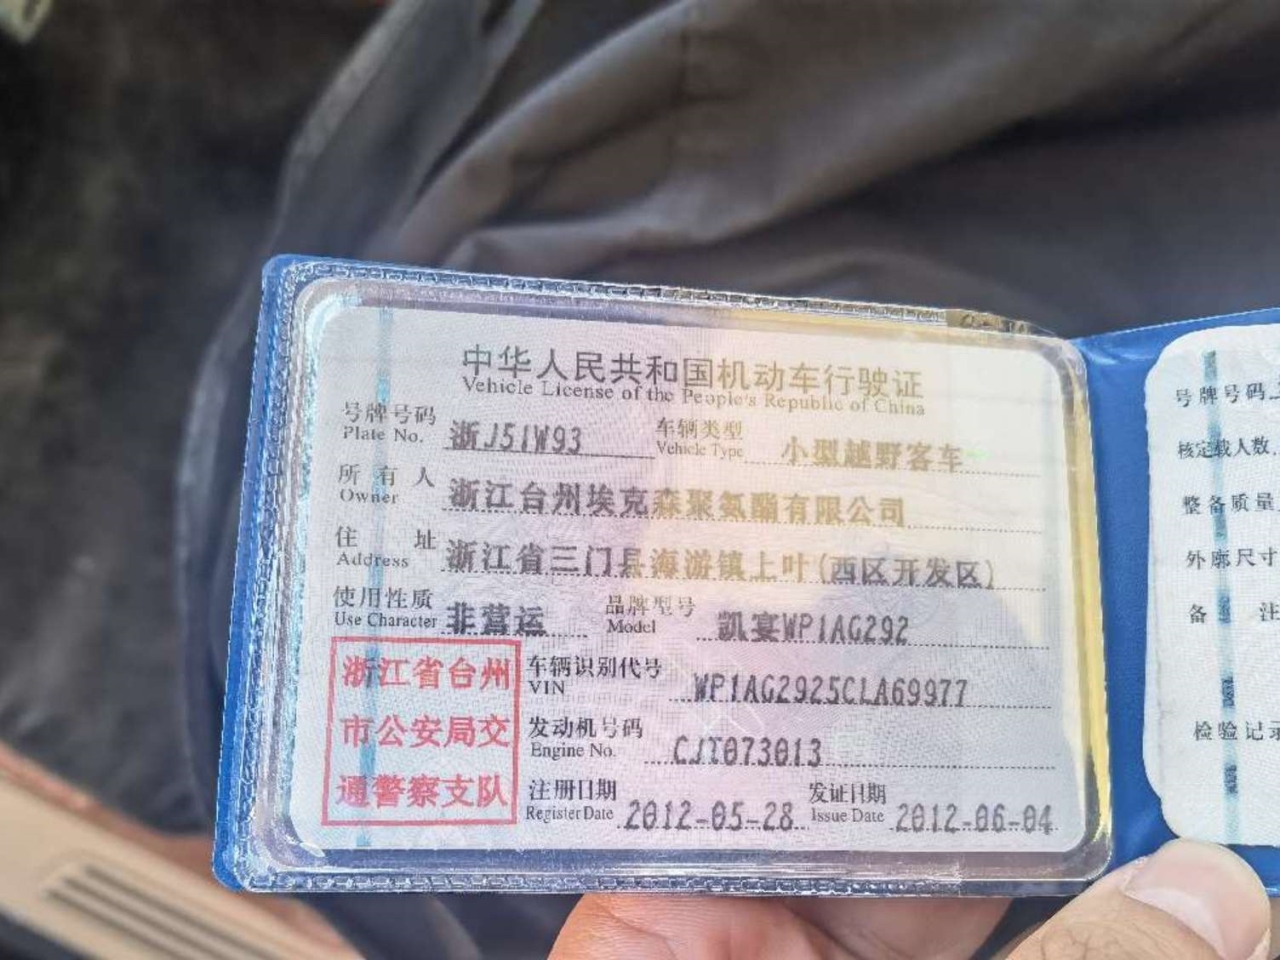 中华人民共和国机动车行驶证
Vehicle License of the People's Republic of China
号牌号码 浙J51W93 车辆类型 小型越野客车
Plate No. Vehicle Type
所有人 浙江台州埃克森聚氨酯有限公司
Owner
住址 浙江省三门县海游镇上叶(西区开发区)
Address
使用性质 非营运 品牌型号 凯宴WP1AG292
Use Character Model
浙江省台州
市公安局交
通警察支队
车辆识别代号 WP1AG2925CLA69977
VIN
发动机号码 CJT073013
Engine No.
注册日期 2012-05-28 发证日期 2012-06-04
Register Date Issue Date
号牌号码
核定载人数
整备质量
外廓尺寸
备注
检验记录